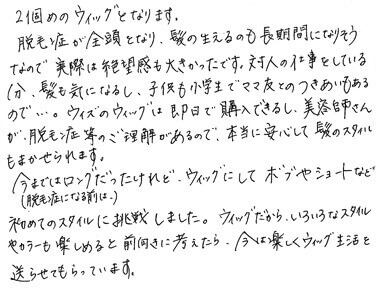 2個めのウィッグとなります。
脱毛症が全頭となり、髪の生えるのも長期間になりそう
なので実際は絶望感も大きかったです。対人の仕事をしている
分、髪も気になるし、子供も小学生でママ友とのつきあいもある
ので…。ウィズのウィッグは即日で購入できるし、美容師さん
が、脱毛症等のご理解があるので、本当に安心して髪のスタイル
もまかせられます。
今まではロングだったけれど、ウィッグにしてボブやショートなど
(脱毛症になる前は。)
初めてのスタイルに挑戦しました。ウィッグだから、いろいろなスタイル
やカラーも楽しめると前向きに考えたら、今は楽しくウィッグ生活を
送らせてもらっています。